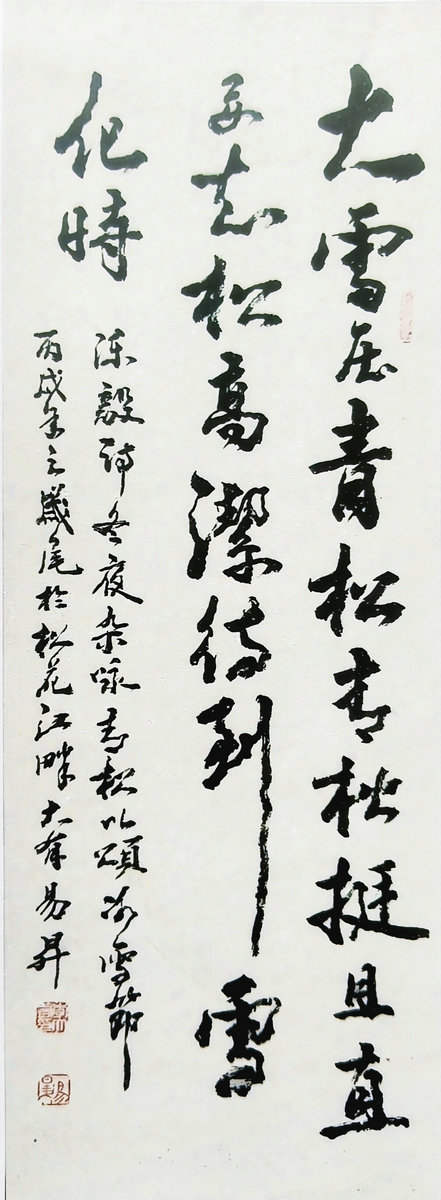 大雪压青松青松挺且直
要知松高潔待到雪
化時
陈毅詩冬夜杂咏青松以頌冰雪節
丙戌年之歲尾於松花江畔大有易昇